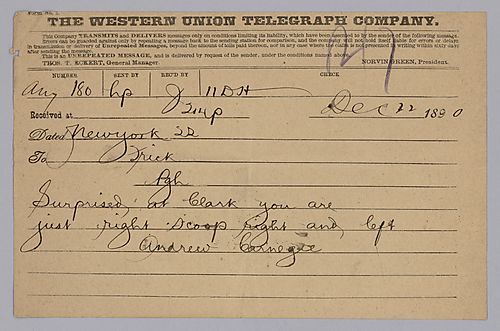 THE WESTERN UNION TELEGRAPH COMPANY.
This Company TRANSMITS and DELIVERS messages only on conditions limiting its liability, which have been assented to by the sender of the following message.
Errors can be guarded against only by repeating a message back to the sending station for comparison, and the company will not hold itself liable for errors or delays
in transmission or delivery of Unrepeated Messages, beyond the amount of tolls paid thereon, nor in any case where the claim is not presented in writing within sixty days
after sending the message.
This is an UNREPEATED MESSAGE, and is delivered by request of the sender, under the conditions named above.
THOS. T. ECKERT, General Manager. NORVIN GREEN, President.
NUMBER SENT BY REC'D BY CHECK
180 hp J 11 D H
Received at 214p Dec 22 1890
Dated New york 22
To Frick
Pgh
Surprised at Clark you are
just right Scoop right and left
Andrew Carnegie